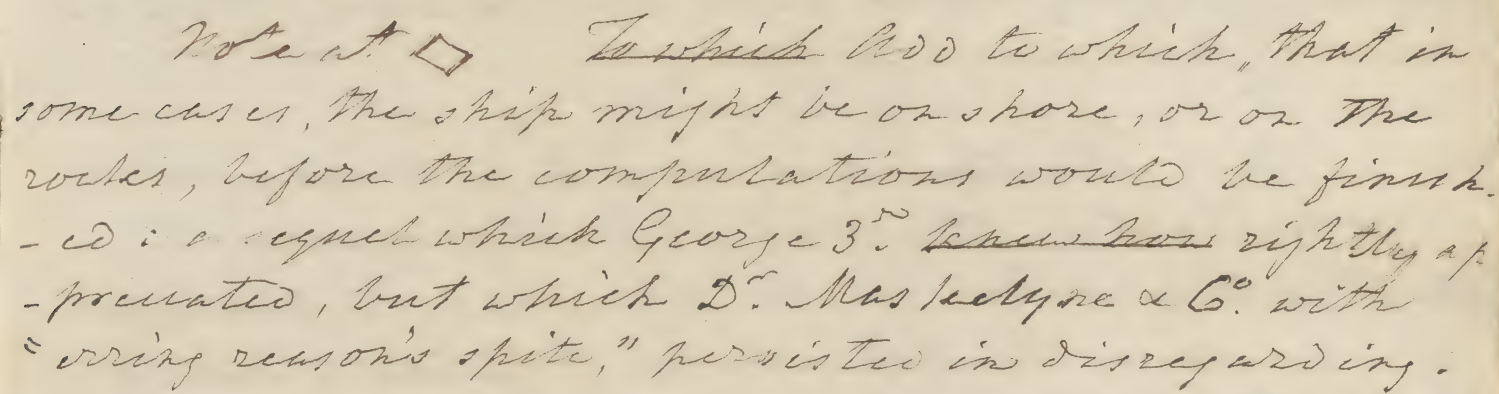 Note at ▱ ~~To which~~ Add to which, that in
some cases, the ship might be on shore, or on the
rocks, before the computations would be finish-
-ed : a sequel which George 3.rd ~~knew how~~ rightly ap
-preciated, but which Dr. Maskelyne & Co. with
"erring reason's spite," persisted in disregarding.